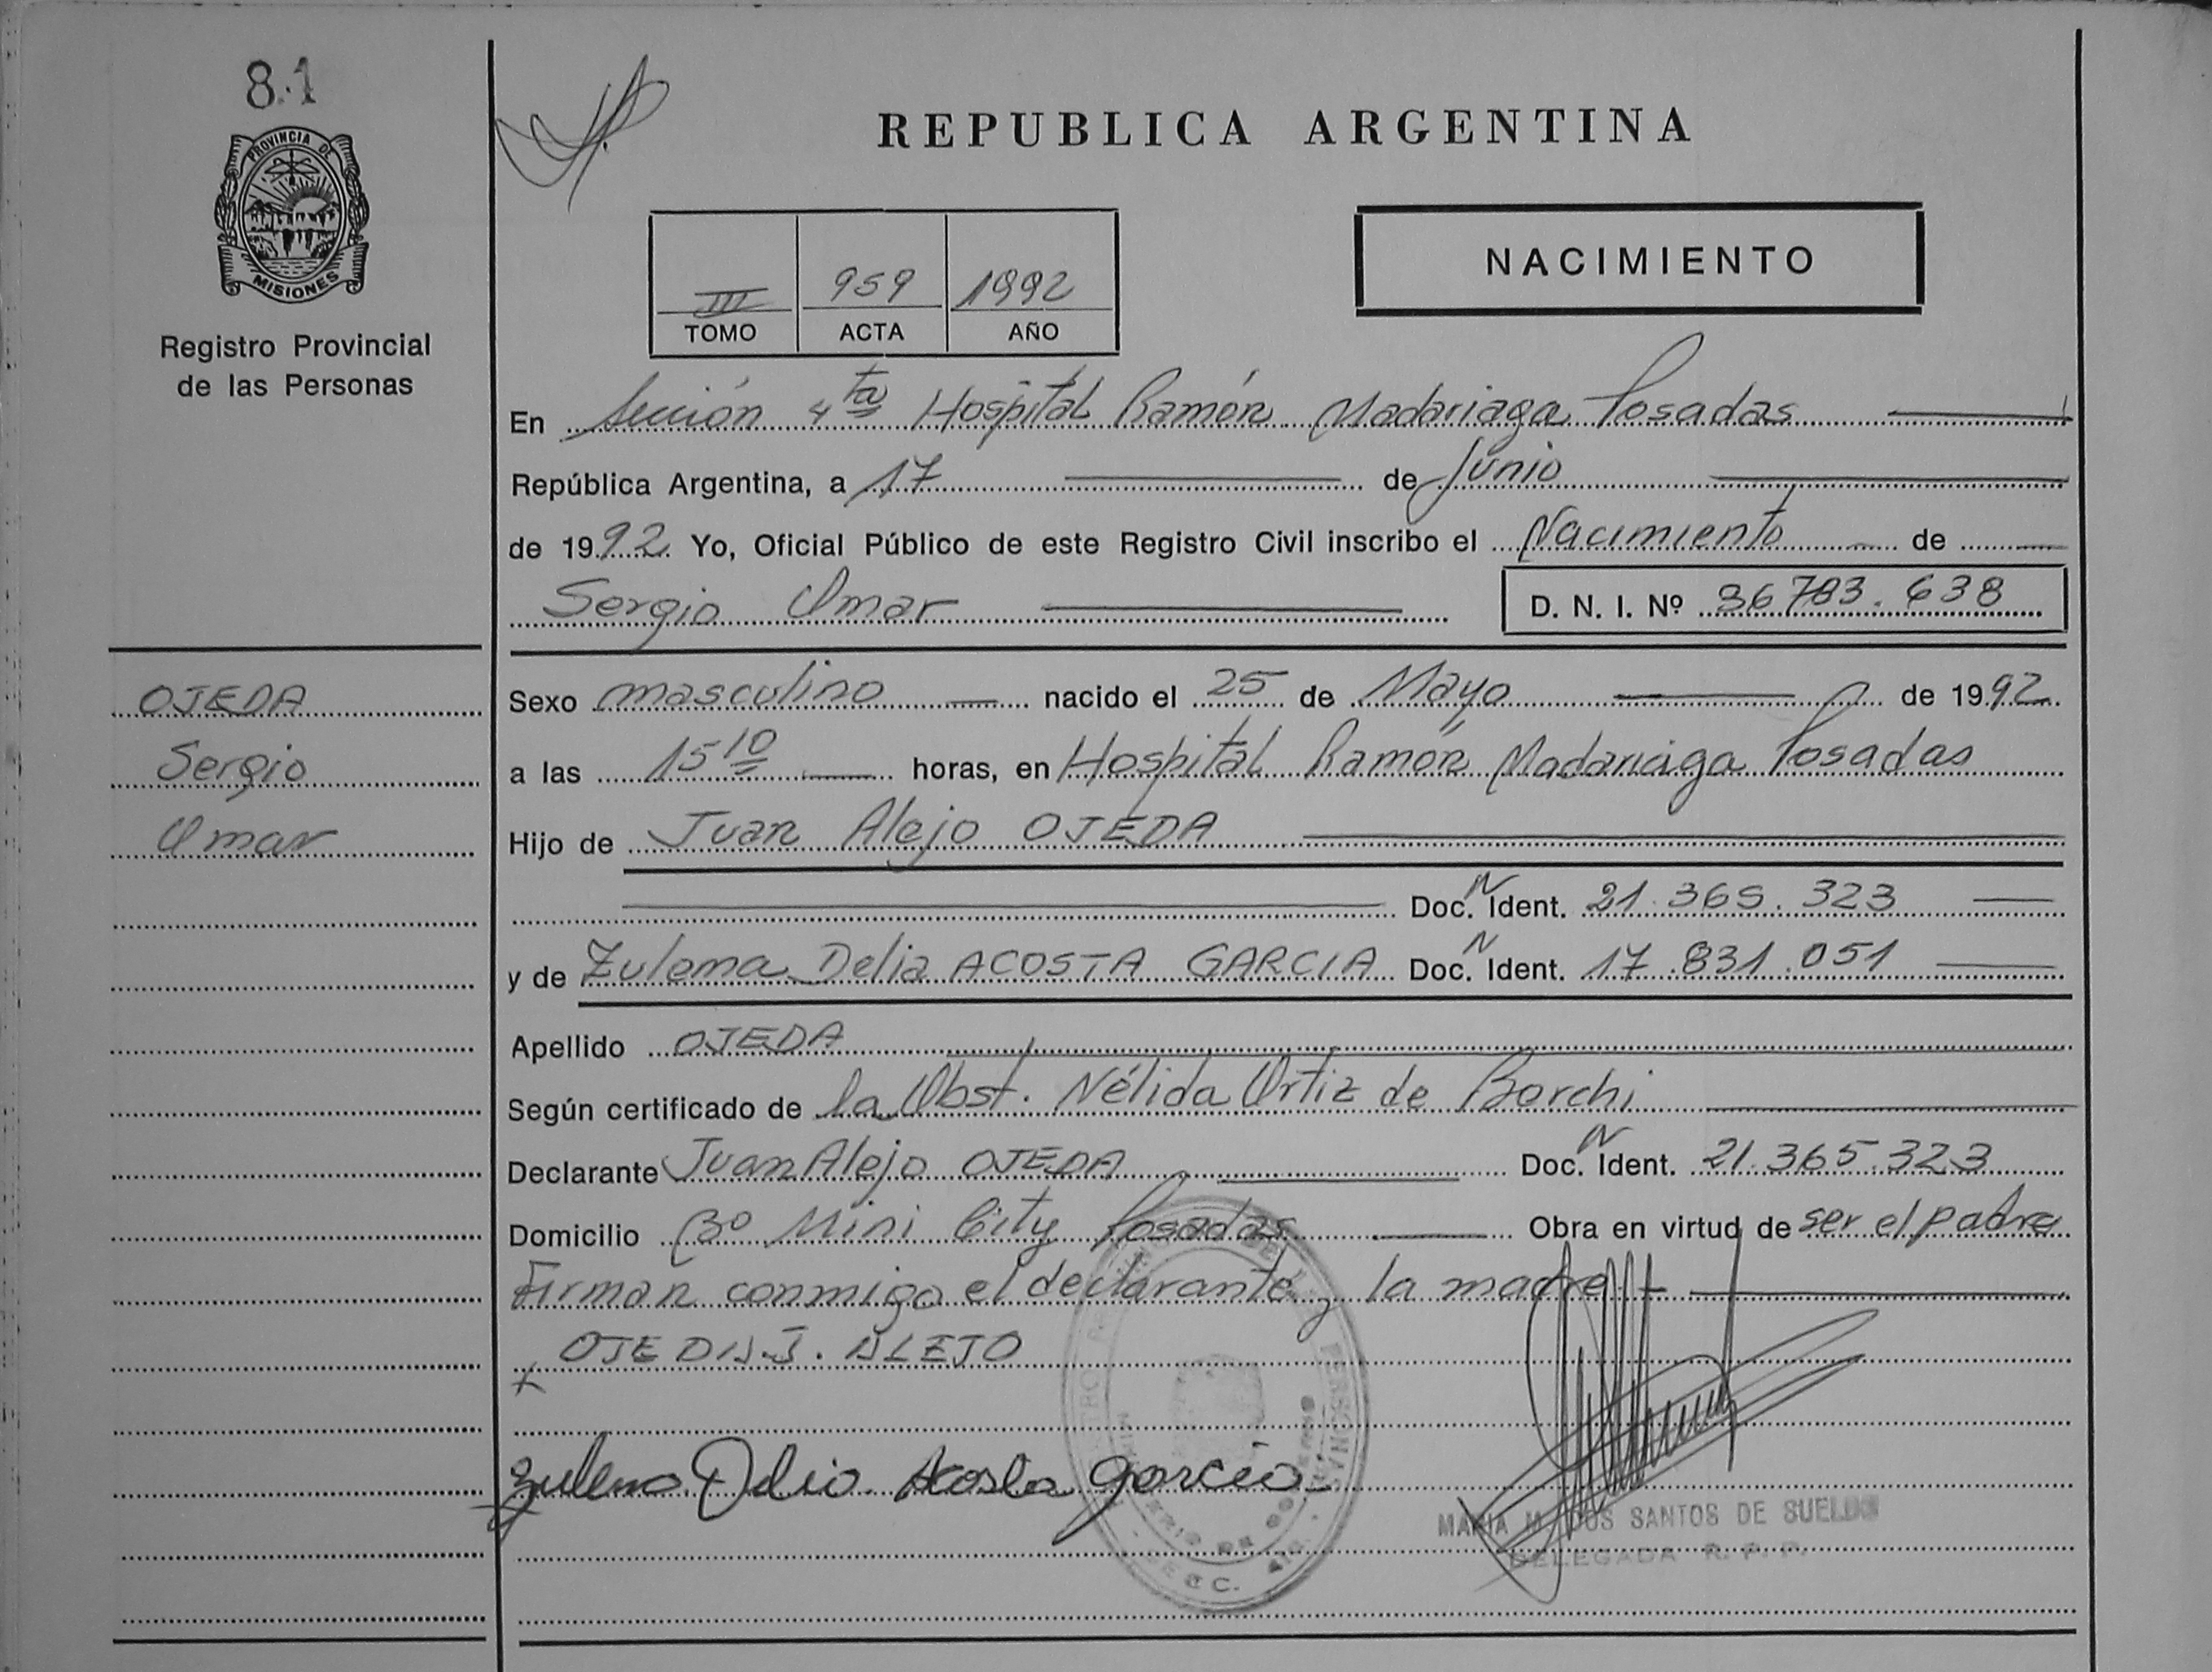 8.1
PROVINCIA DE
MISIONES
Registro Provincial
de las Personas
OJEDA
Sergio
Omar
REPUBLICA ARGENTINA
III 959 1992
TOMO ACTA AÑO
NACIMIENTO
En Sección 4ta Hospital Ramón Madariaga Posadas
República Argentina, a 17 de Junio
de 1992 Yo, Oficial Público de este Registro Civil inscribo el Nacimiento de
Sergio Omar D. N. I. Nº 36783.638
Sexo masculino nacido el 25 de Mayo de 1992.
a las 15 10 horas, en Hospital Ramón Madariaga Posadas
Hijo de Juan Alejo OJEDA
Doc. N Ident. 21.365.323
y de Zulema Delia ACOSTA GARCIA Doc. N Ident. 17.831.051
Apellido OJEDA
Según certificado de la Obst. Nélida Ortiz de Borchi
Declarante Juan Alejo OJEDA Doc. N Ident. 21.365.323
Domicilio Bº Mini City Posadas Obra en virtud de ser el padre
Firman conmigo el declarante y la madre
OJEDA J. ALEJO
Zulema Delia Acosta Garcia
MARIA M. DOS SANTOS DE SUELDO
DELEGADA R. P. P.